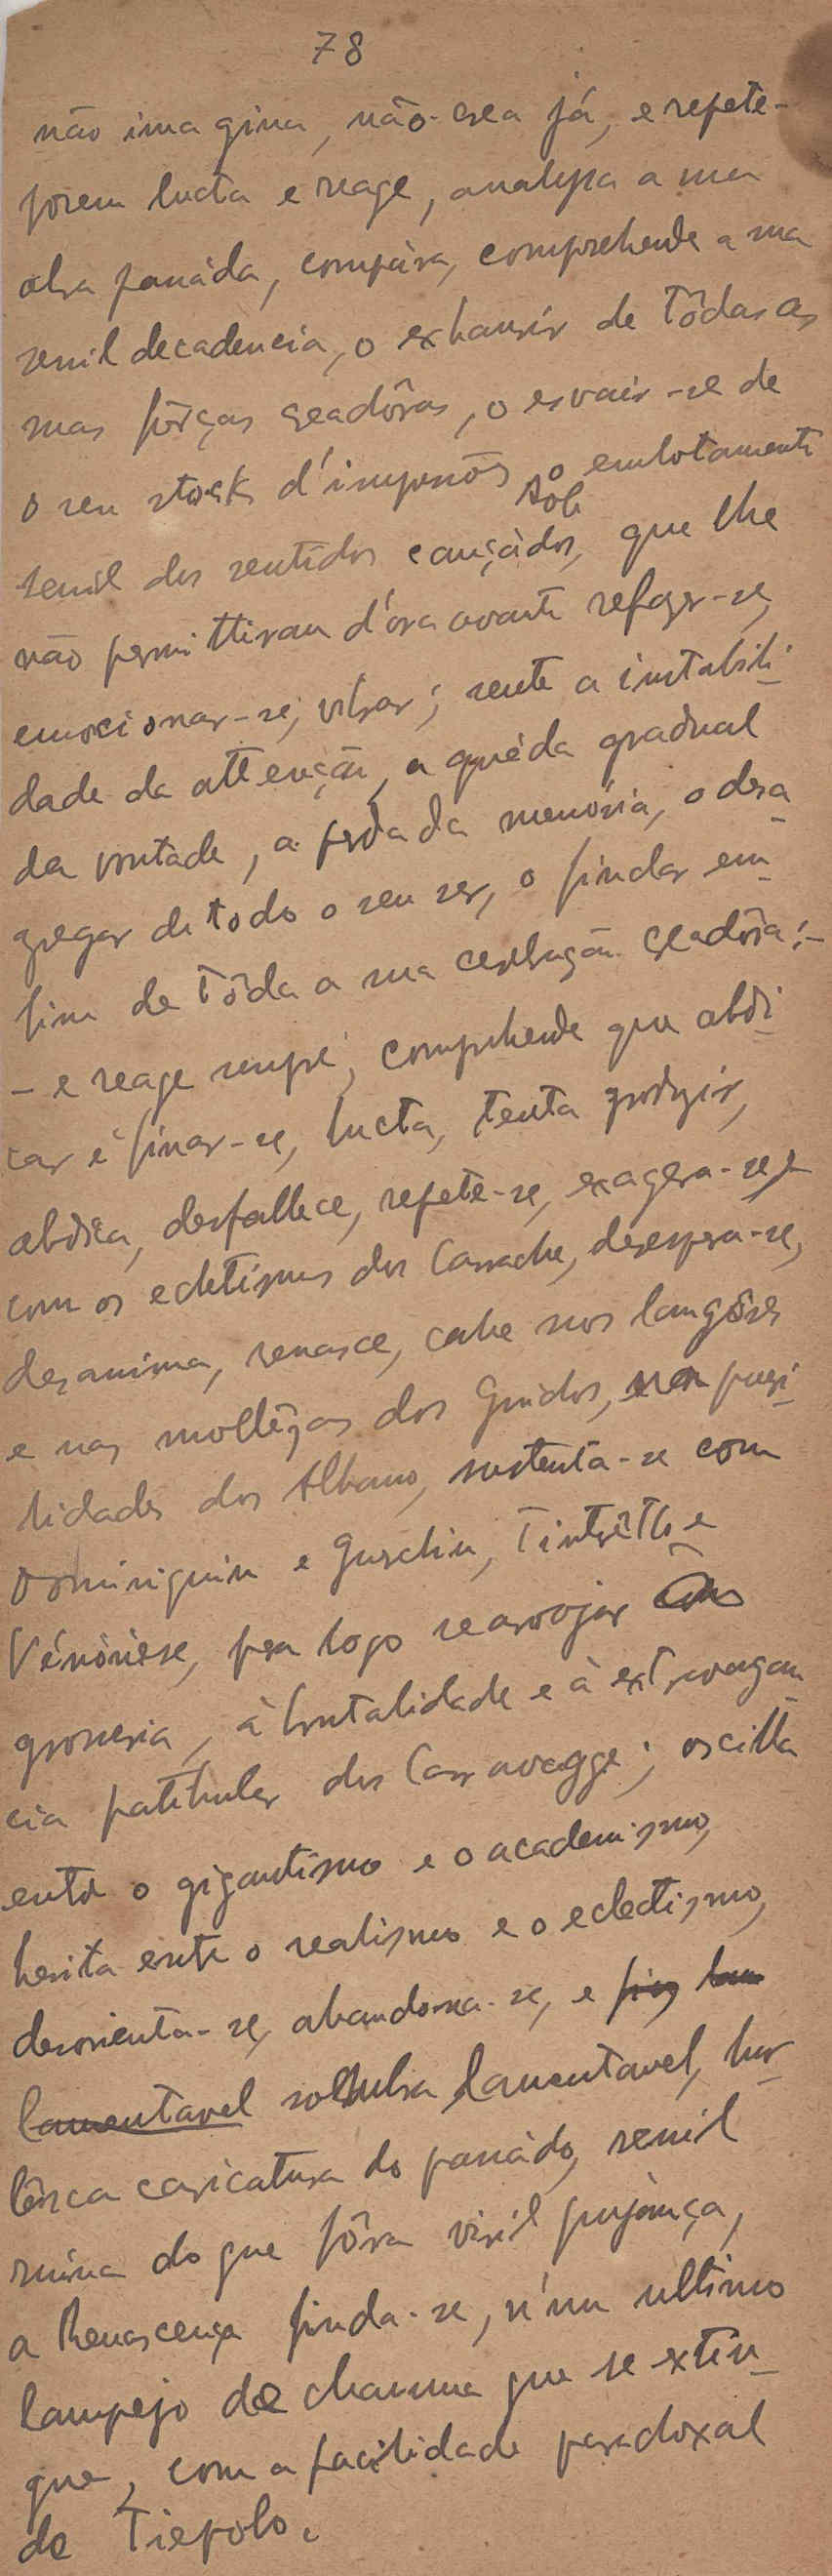 78
não imagina, não crea já, e repete-
porem lucta e reage, analysa a sua
obra passáda, compára, comprehende a sua
senil decadencia, o exhaurir de tôdas as
suas fôrças creadôras, o esvair-se de
o seu stock d'impressões, o embotamento
senil dos sentidos cançádos, que lhe
não permittiram d'ora avante refazer-se,
emocionar-se, vibrar; sente a instabili-
dade da attenção, a quéda gradual
da vontade, a perda da memória, o desa-
gregar de todo o seu ser, o findar em-
fim de tôda a sua cerebração creadôra;-
- e reage sempre, comprehende que abdi-
car é finar-se, lucta, tenta produzir,
abdica, desfallece, repete-se, exagera-se
com os ecletismos dos Carrache, desespera-se,
desanima, renasce, cahe nos langôres
e nas mollêzas dos Guidos, puri-
lidades dos Albano, sustenta-se com
Dominiquin e Guerchin, Tintôtto e
Vérònèse, pra logo se arrojar
grosseria, à brutalidade e à extravagan-
cia patibular dos Carravagge; oscilla
entre o gigantismo e o academismo,
hesita entre o realismo e o ecletismo,
desorienta-se, abandona-se, e
lamentavel sombra lamentavel, bur-
lêsca caricatura do passádo, senil
ruina do que fôra viril pujança,
a Renascença finda-se, n'um ultimo
lampejo de chamma que se extin-
gue, com a facilidade paradoxal
de Tiepolo.